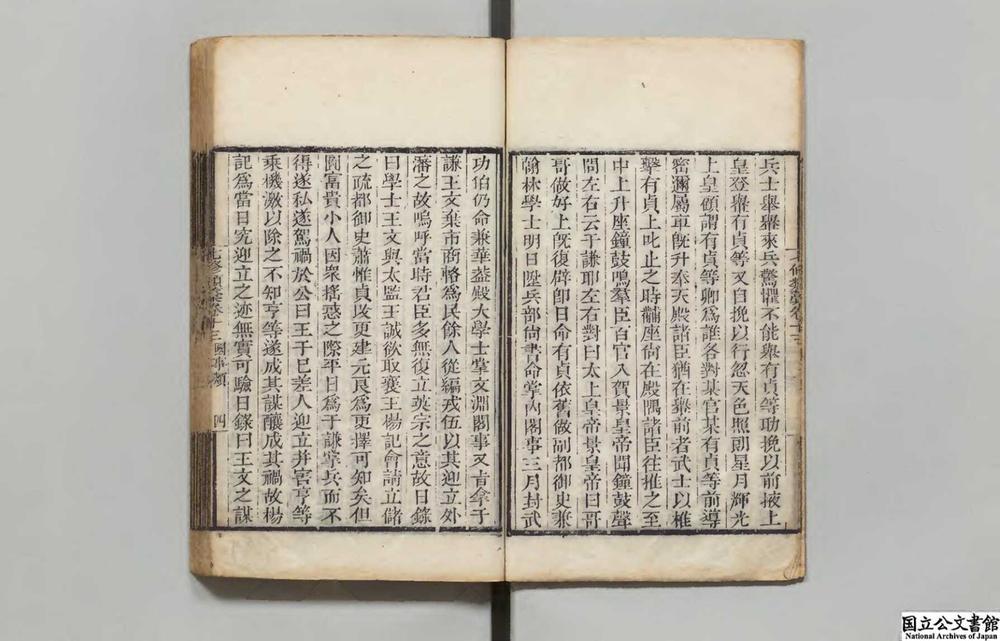 兵士舉轝來兵驚懼不能舉有貞等助挽以前掖上
皇登轝有貞等又自挽以行忽天色照朗星月輝光
上皇顧謂有貞等卿爲誰各對某官某有貞等前導
密邇屬車既升奉天殿諸臣猶在轝前者武士以椎
擊有貞上叱止之時黼座尙在殿隅諸臣往推之至
中上升座鐘鼓鳴羣臣百官入賀景皇帝聞鐘鼓聲
問左右云于謙耶左右對曰太上皇帝景皇帝曰哥
哥做好上既復辟卽日命有貞依舊做副都御史兼
翰林學士明日陞兵部尙書命掌內閣事三月封武
功伯仍命兼華葢殿大學士掌文淵閣事又旨拿于
謙王文棄市商輅爲民餘人從編戎伍以其迎立外
藩之故嗚呼當時君臣多無復立英宗之意故日錄
曰學士王文與太監王誠欲取襄王楊記會請立儲
之疏都御史蕭惟貞改更建元良爲更擇可知矣但
圖富貴小人因衆搖惑之際平日爲于謙掌兵而不
得遂私遂駕禍於公曰王于已差人迎立幷官亨等
乘機激以除之不知亨等遂成其謀釀成其禍故楊
記爲當日究迎立之迹無實可驗日錄曰王文之謀
七修類藁卷十三
七修類藁卷十三 國事類 四
国立公文書館
National Archives of Japan